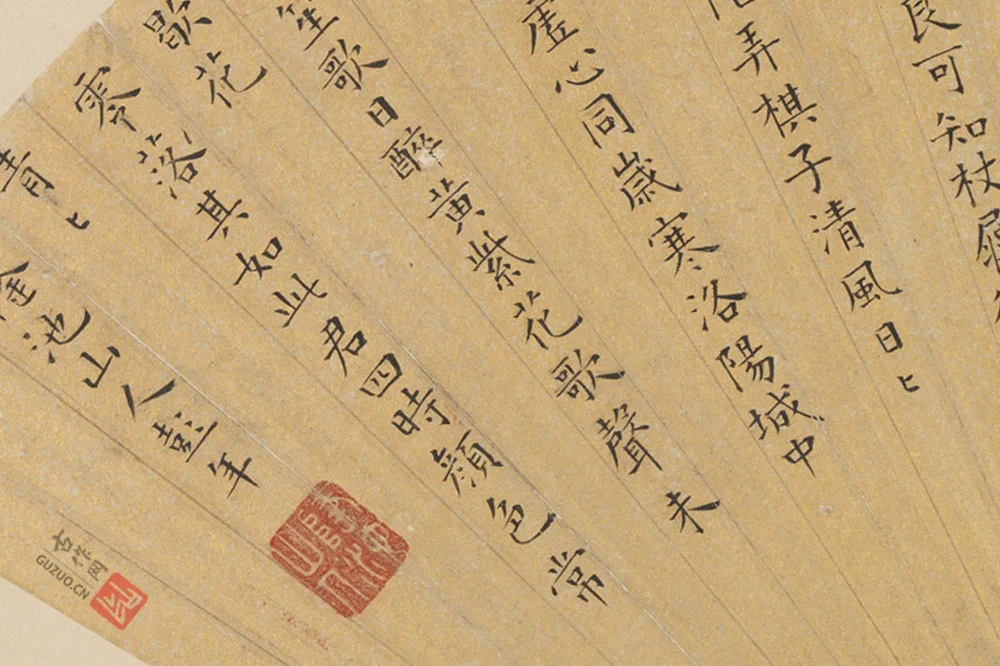 良可知杖
弄棋子清風日匕
虛心同歲寒洛陽城中
笙歌日醉黃紫花歌聲未
歇花
零落其如此君四時顏色常
青匕
池山人彭年
古作网
GUZUO.CN